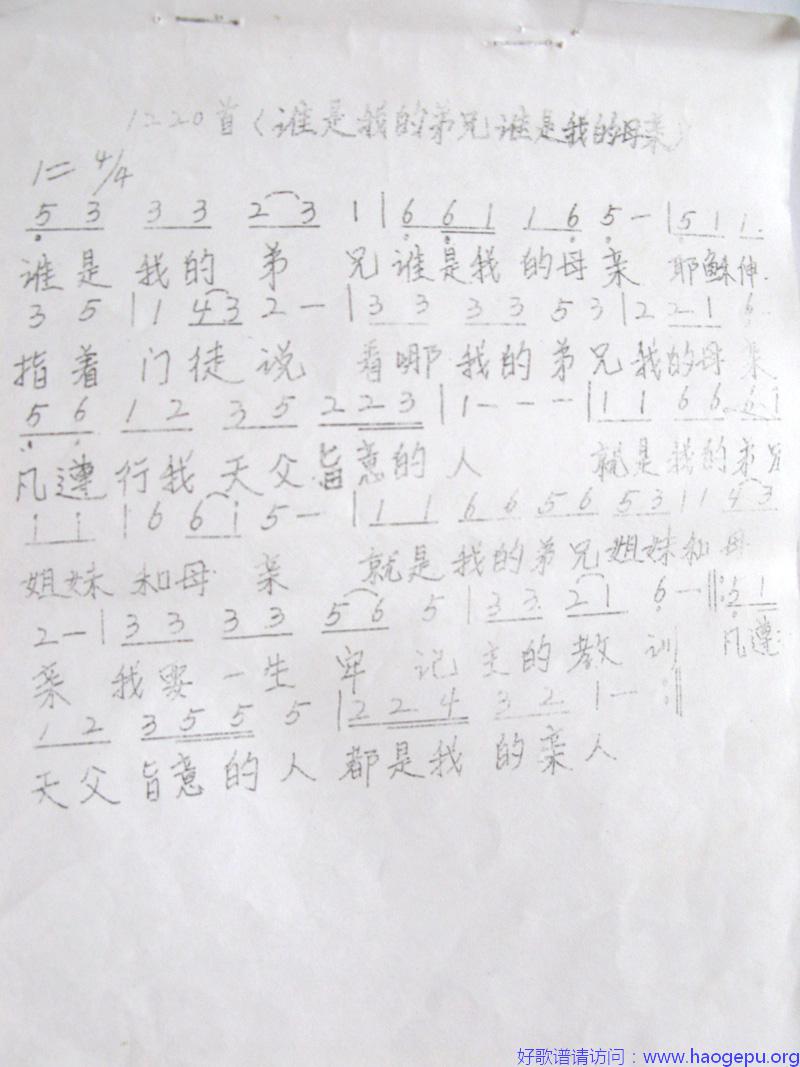 1220首(谁是我的弟兄谁是我的母亲)
1= 4/4
5 3 3 3 2 3 1 | 6 6 1 1 6 5 — | 5 1 1
谁是我的弟兄谁是我的母亲 耶稣伸
3 5 | 1 4 3 2 — | 3 3 3 3 5 3 | 2 2 1 6
指着门徒说 看哪我的弟兄我的母亲
5 6 1 2 3 5 2 2 3 | 1 — — — | 1 1 6 6 6 1
凡遵行我天父旨意的人 就是我的弟兄
1 1 | 6 6 1 5 — | 1 1 6 6 5 6 5 3 | 1 4 3
姐妹和母亲 就是我的弟兄姐妹和母
2 — | 3 3 3 3 5 6 5 | 3 3 2 1 6 — ‖: 5 1
亲 我要一生牢记主的教训 凡遵
1 2 3 5 5 5 | 2 2 4 3 2 1 — :‖
天父旨意的人都是我的亲人
好歌谱请访问：www.haogepu.org